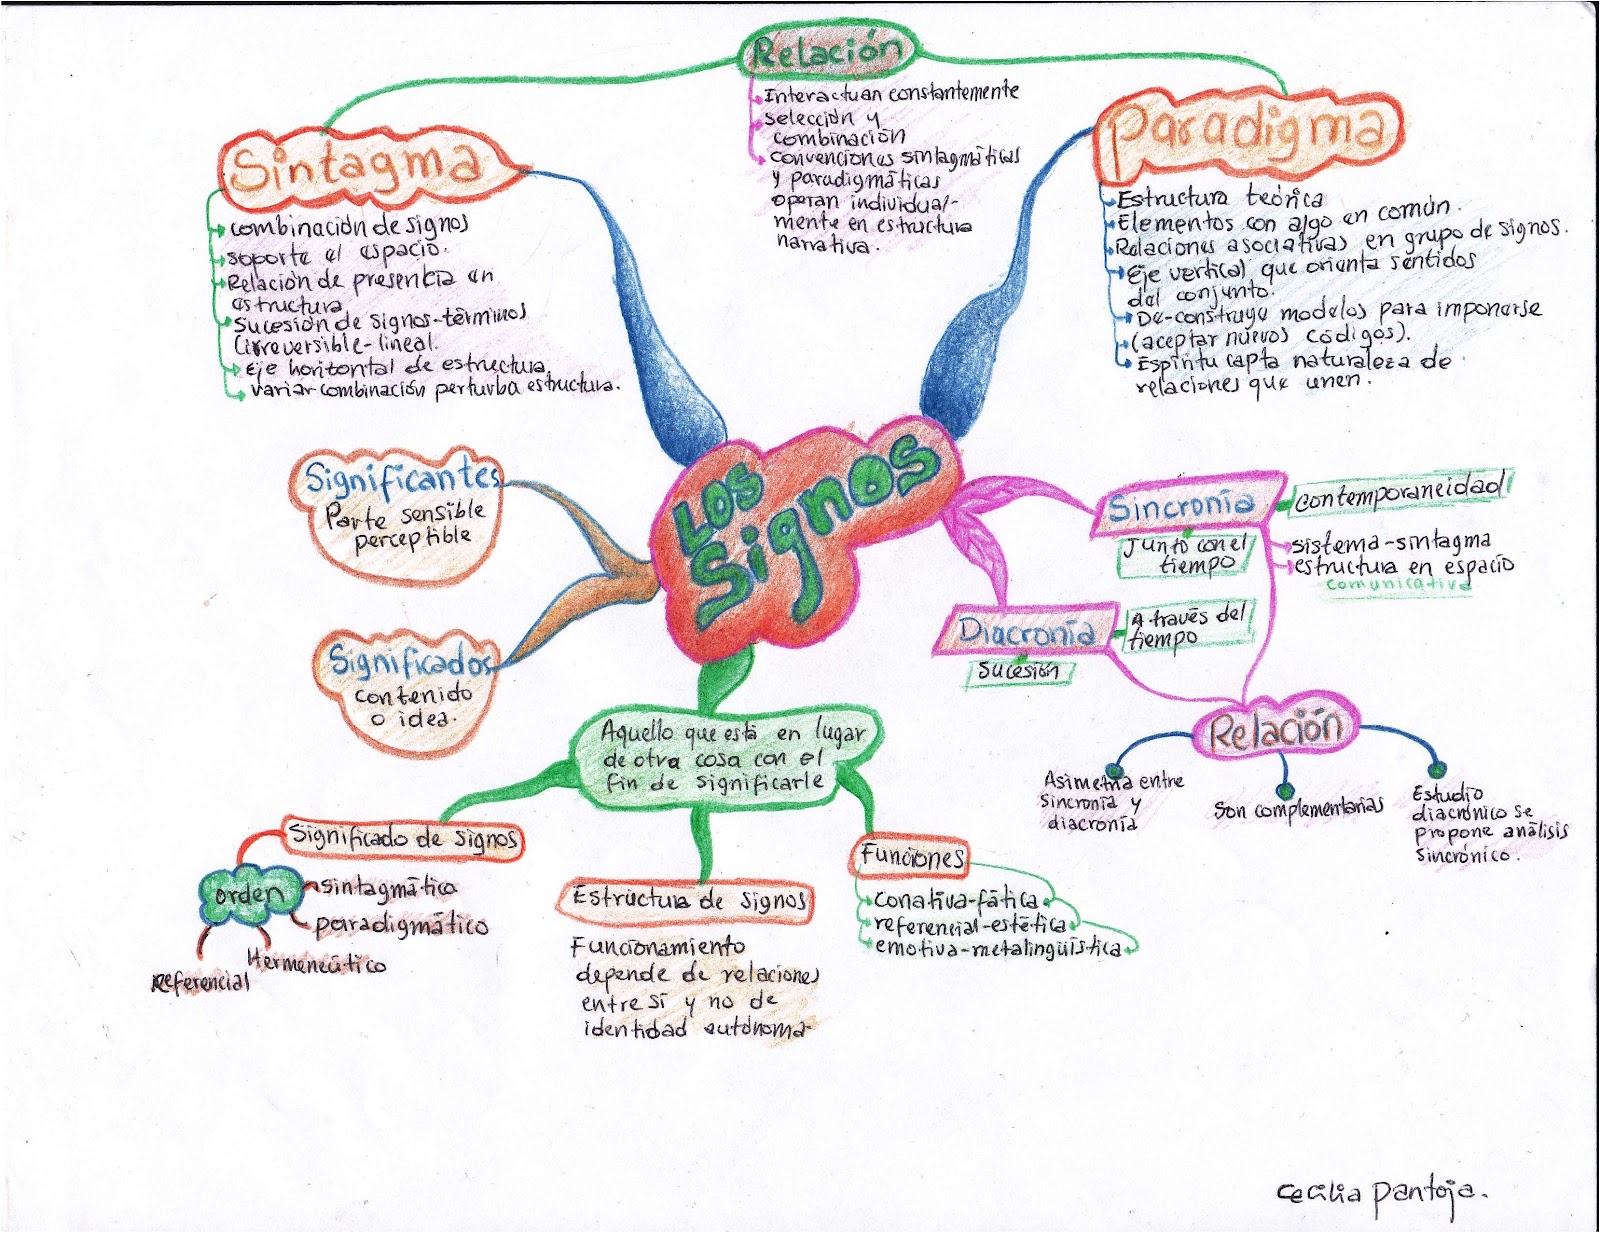 Relación
Interactuan constantemente
selección y
combinación
convenciones sintagmáticas
y paradigmáticas
operan individual-
mente en estructura
narrativa.
Sintagma
combinación de signos
soporte el espacio.
Relación de presencia en
estructura
Sucesión de signos-términos
(irreversible-lineal.
Eje horizontal de estructura
variar combinación perturba estructura.
Paradigma
Estructura teórica
Elementos con algo en común.
Relaciones asociativas en grupo de signos.
Eje vertical que orienta sentidos
del conjunto.
De-construye modelos para imponerse
(aceptar nuevos códigos).
Espíritu capta naturaleza de
relaciones que unen.
Los
Signos
Significantes
Parte sensible
perceptible
Significados
contenido
o idea.
Sincronía
contemporaneidad
Junto con el
tiempo
sistema-sintagma
estructura en espacio
comunicativa
Diacronía
A través del
tiempo
Sucesión
Relación
Asimetría entre
sincronía y
diacronía
Son complementarias
Estudio
diacrónico se
propone análisis
sincrónico.
Aquello que está en lugar
de otra cosa con el
fin de significarle
Significado de signos
orden
sintagmático
paradigmático
Hermeneútico
Referencial
Estructura de signos
Funcionamiento
depende de relaciones
entre sí y no de
identidad autónoma
Funciones
conativa-fática
referencial-estética
emotiva-metalingüística
Cecilia Pantoja.